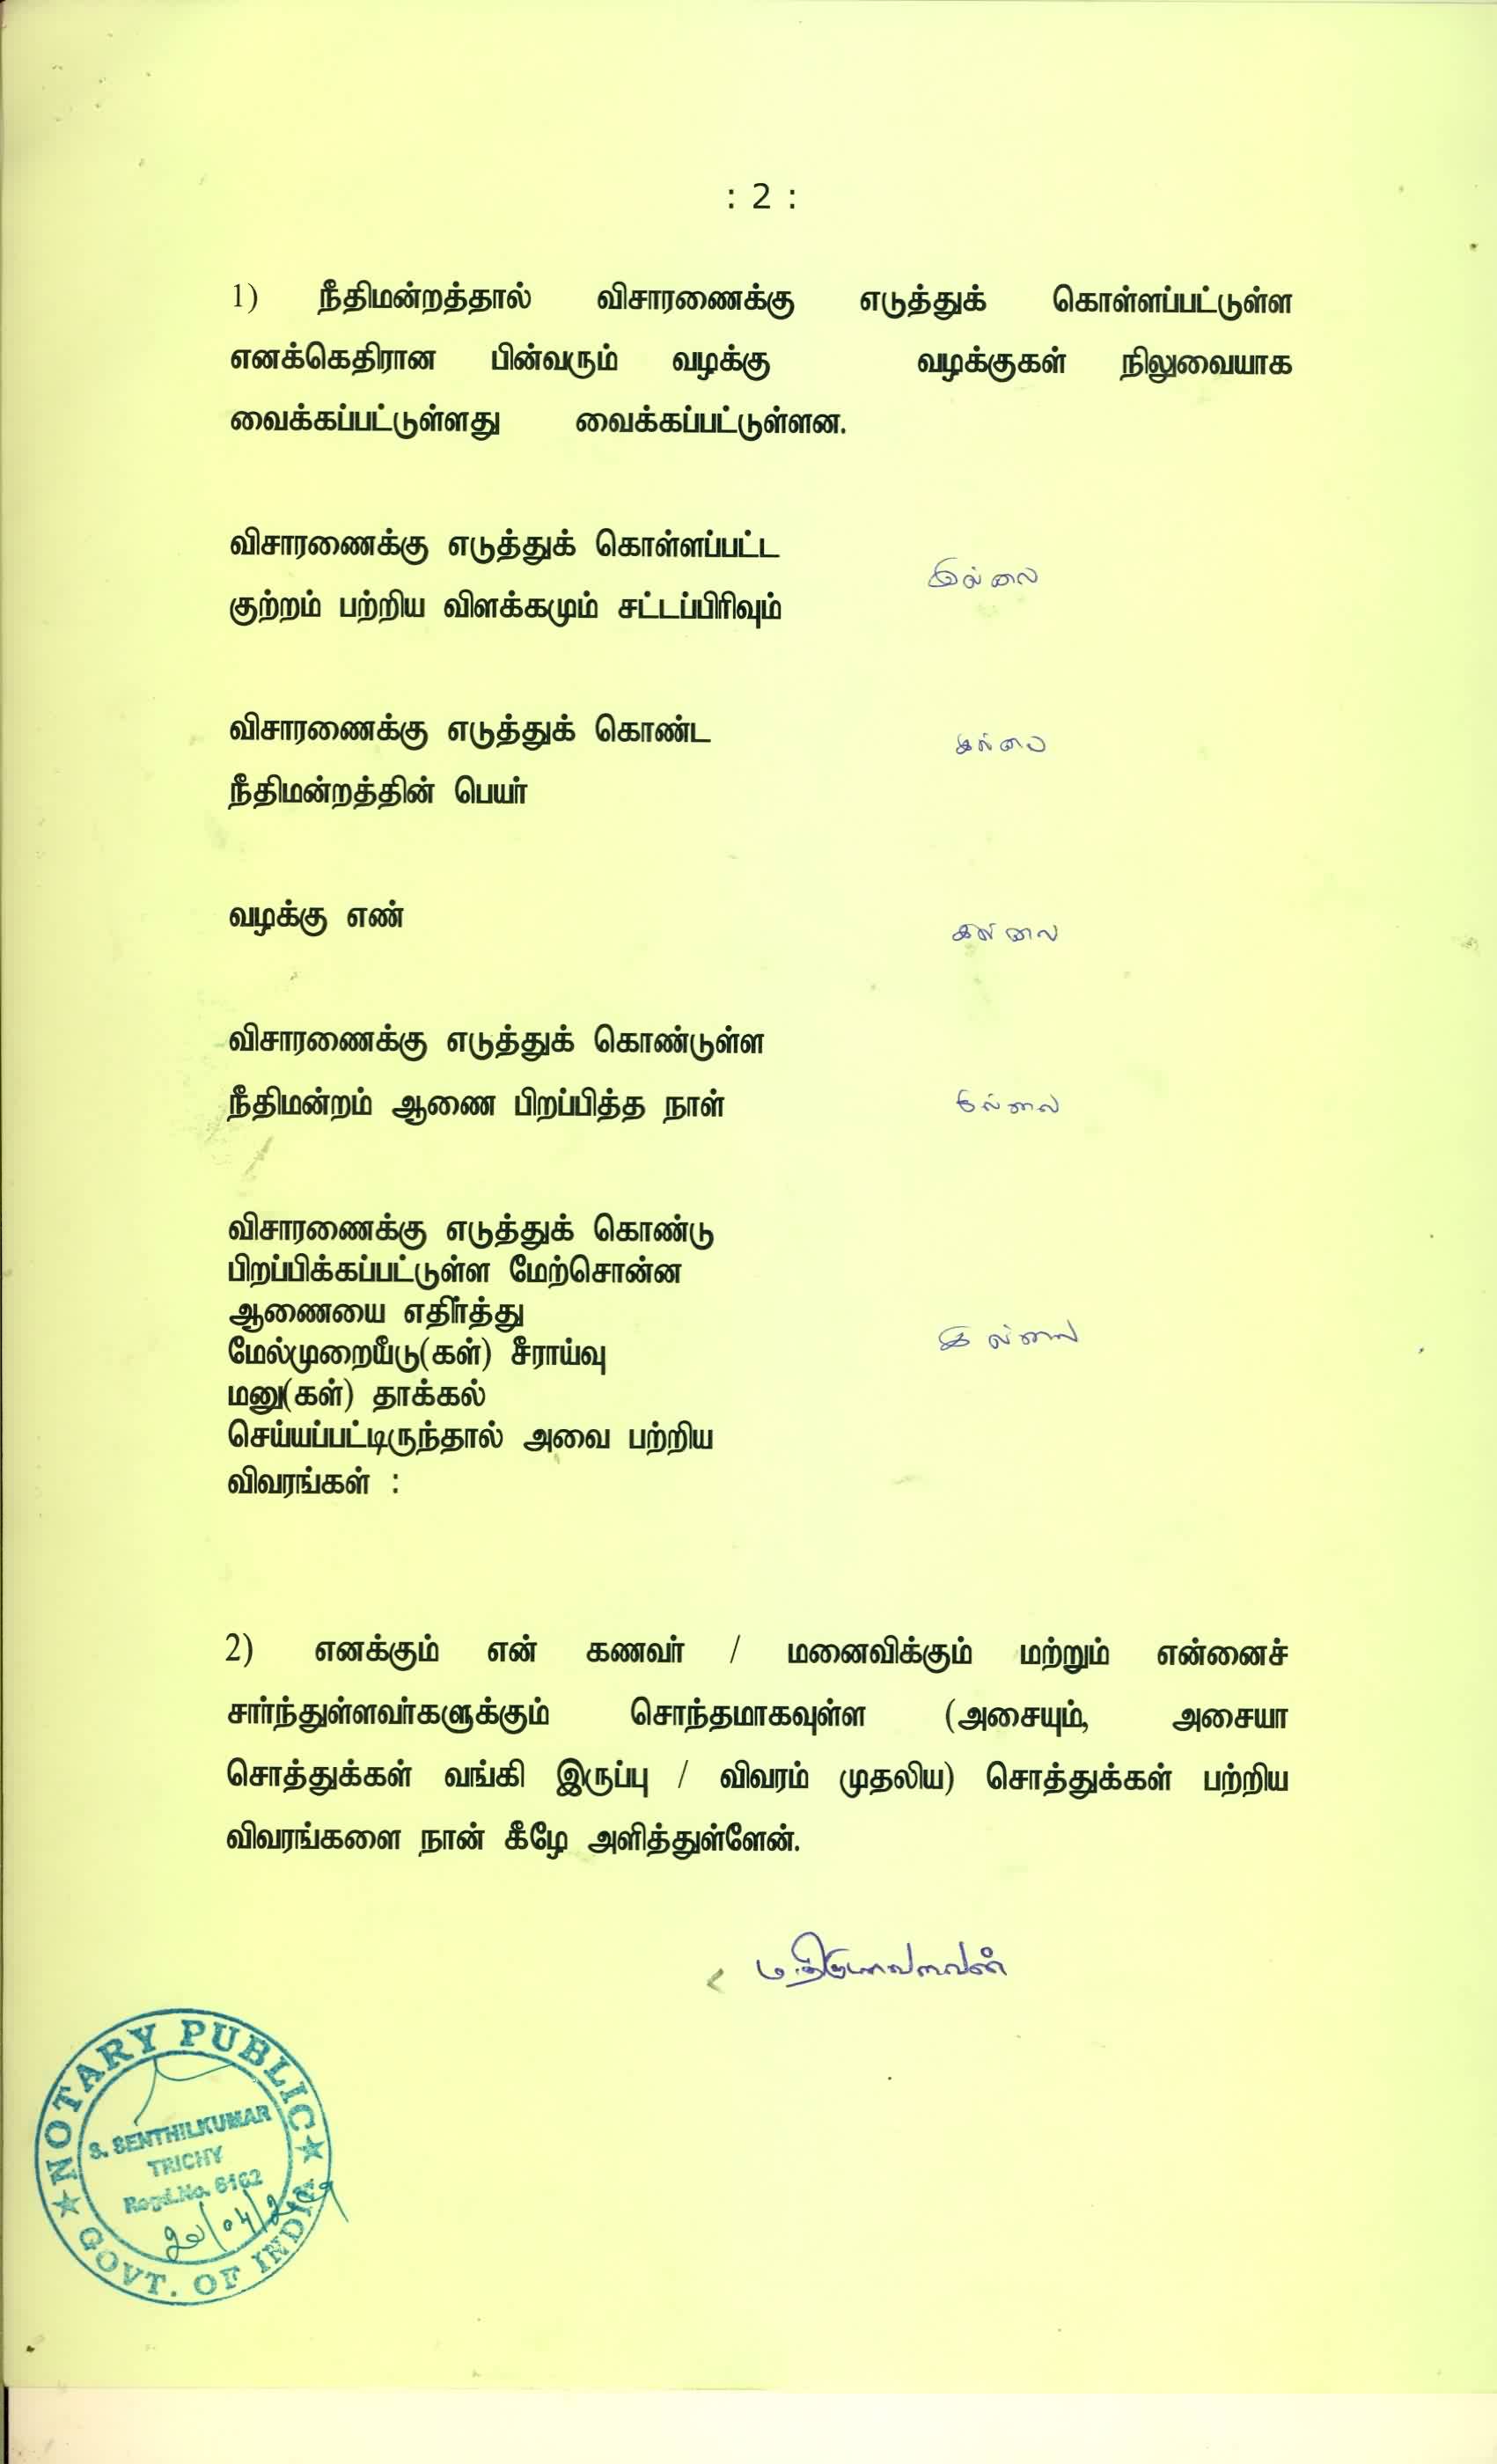 : 2 :
1) நீதிமன்றத்தால் விசாரணைக்கு எடுத்துக் கொள்ளப்பட்டுள்ள
எனக்கெதிரான பின்வரும் வழக்கு வழக்குகள் நிலுவையாக
வைக்கப்பட்டுள்ளது வைக்கப்பட்டுள்ளன.
விசாரணைக்கு எடுத்துக் கொள்ளப்பட்ட
குற்றம் பற்றிய விளக்கமும் சட்டப்பிரிவும்
இல்லை
விசாரணைக்கு எடுத்துக் கொண்ட
நீதிமன்றத்தின் பெயர்
இல்லை
வழக்கு எண்
இல்லை
விசாரணைக்கு எடுத்துக் கொண்டுள்ள
நீதிமன்றம் ஆணை பிறப்பித்த நாள்
இல்லை
விசாரணைக்கு எடுத்துக் கொண்டு
பிறப்பிக்கப்பட்டுள்ள மேற்சொன்ன
ஆணையை எதிர்த்து
மேல்முறையீடு(கள்) சீராய்வு
மனு(கள்) தாக்கல்
செய்யப்பட்டிருந்தால் அவை பற்றிய
விவரங்கள் :
இல்லை
2) எனக்கும் என் கணவர் / மனைவிக்கும் மற்றும் என்னைச்
சார்ந்துள்ளவர்களுக்கும் சொந்தமாகவுள்ள (அசையும், அசையா
சொத்துக்கள் வங்கி இருப்பு / விவரம் முதலிய) சொத்துக்கள் பற்றிய
விவரங்களை நான் கீழே அளித்துள்ளேன்.
NOTARY PUBLIC
S. SENTHILKUMAR
TRICHY
Regd.No. 6162
GOVT. OF INDIA